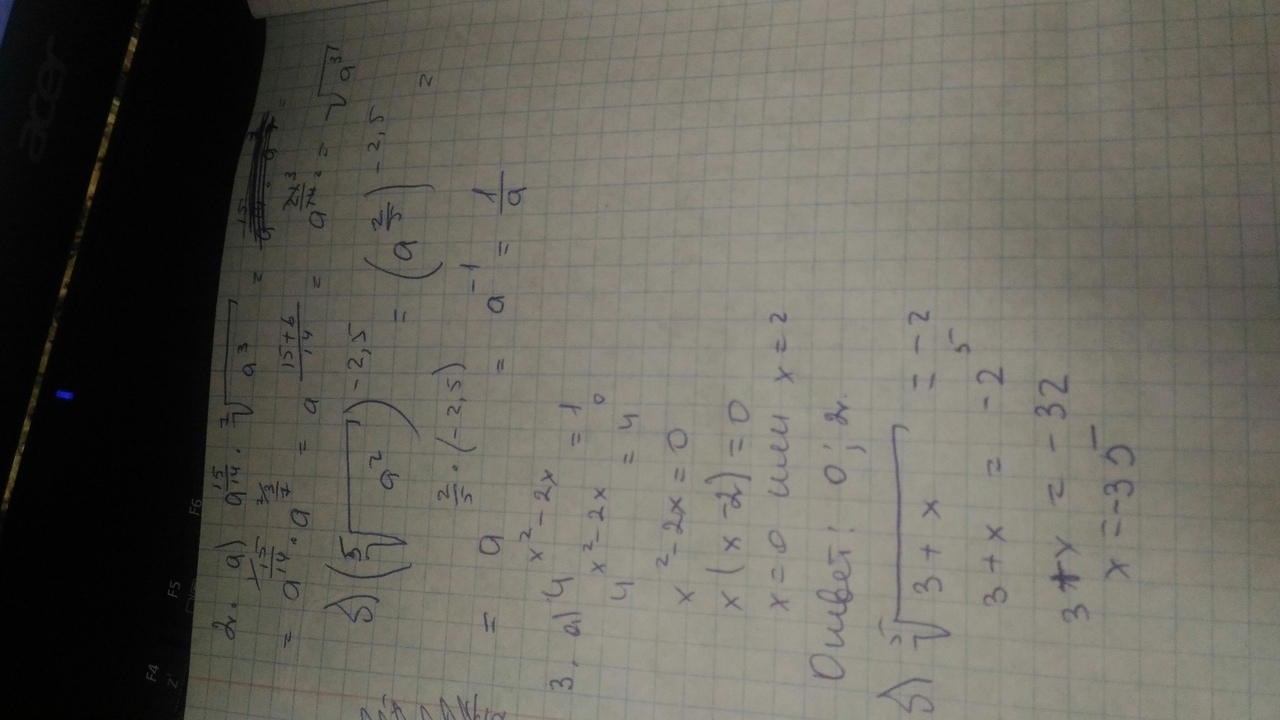 acer
F4
F5
F6
2. а) a^(15/14) · ⁷√(a³) =
= a^(15/14) · a^(3/7) = a^((15+6)/14) = a^(21/14) = √(a³)
б) (⁵√(a²))^(-2,5) = (a^(2/5))^(-2,5) =
= a^(2/5 · (-2,5)) = a^(-1) = 1/a
3. а) 4^(x²-2x) = 1
4^(x²-2x) = 4⁰
x²-2x=0
x(x-2)=0
x=0 или x=2
Ответ: 0; 2.
б) ⁵√(3+x) = -2
3+x = -2⁵
3+x = -32
x=-35